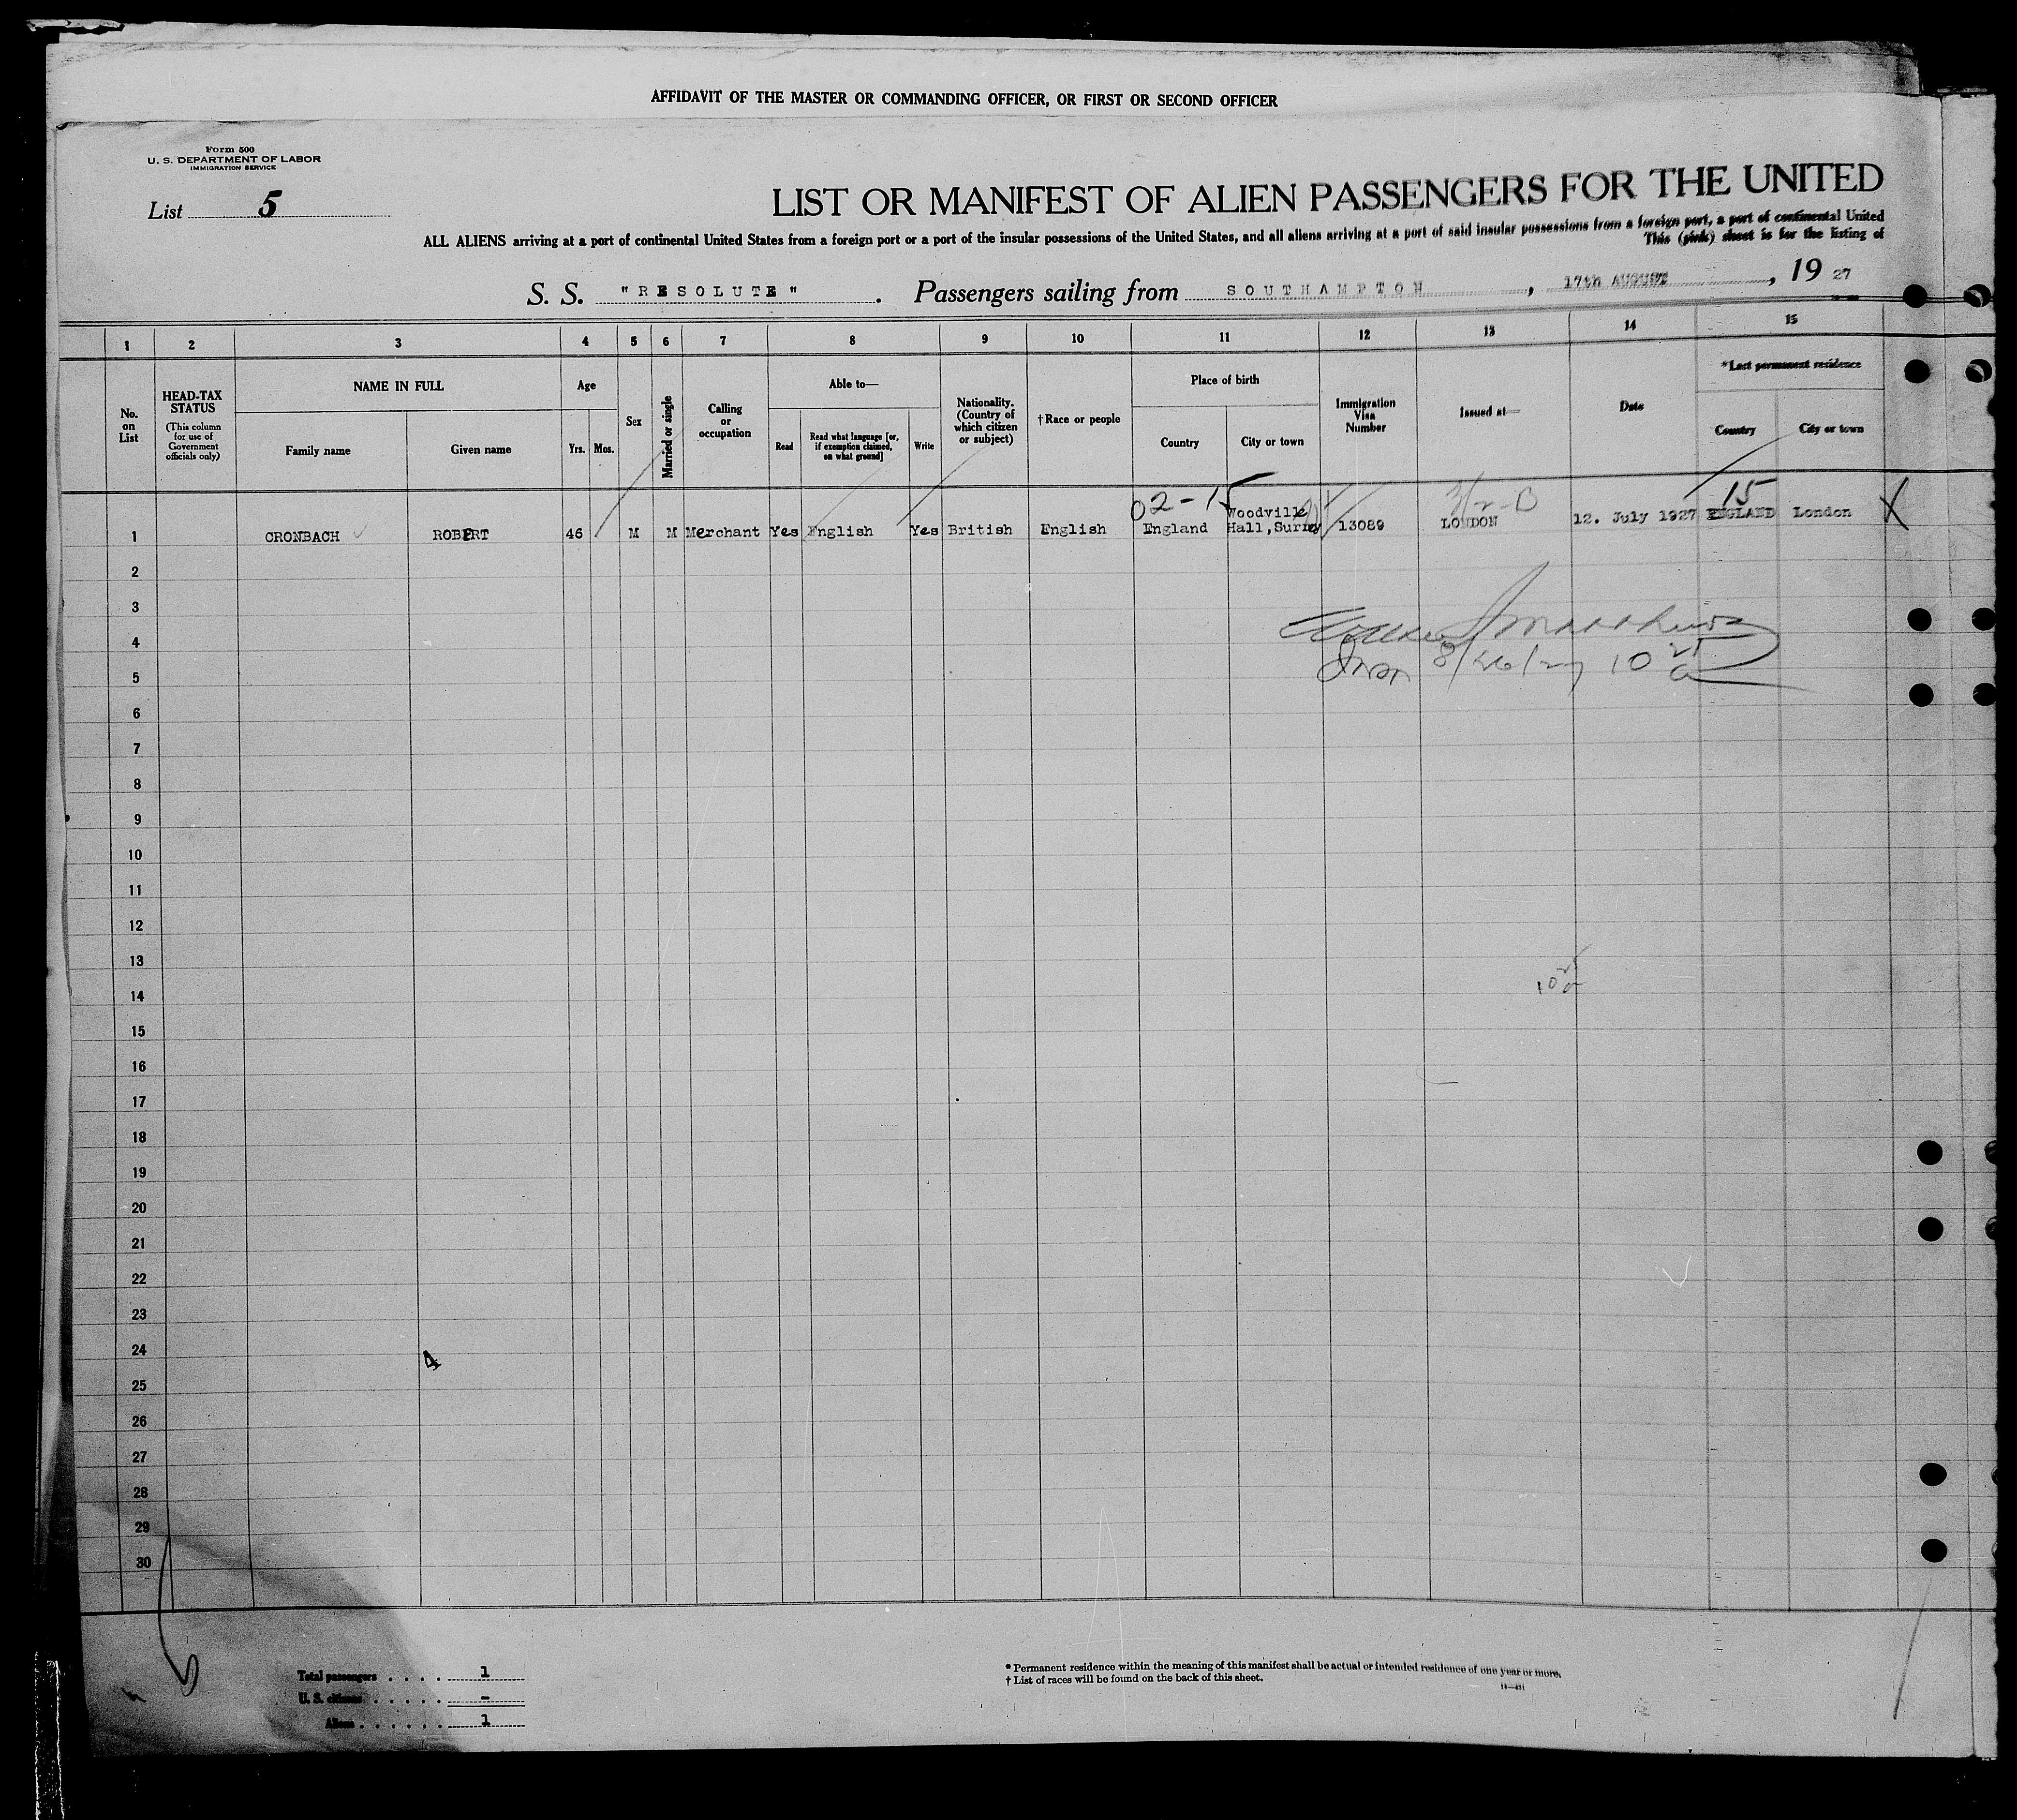 AFFIDAVIT OF THE MASTER OR COMMANDING OFFICER, OR FIRST OR SECOND OFFICER
Form 500
U. S. DEPARTMENT OF LABOR
IMMIGRATION SERVICE
List 5
LIST OR MANIFEST OF ALIEN PASSENGERS FOR THE UNITED
ALL ALIENS arriving at a port of continental United States from a foreign port or a port of the insular possessions of the United States, and all aliens arriving at a port of said insular possessions from a foreign port, a port of continental United
This (pink) sheet is for the listing of
S. S. "RESOLUTE". Passengers sailing from SOUTHAMPTON, 17th AUGUST, 19 27
1 2 3 4 5 6 7 8 9 10 11 12 13 14 15
No. on List
HEAD-TAX STATUS
(This column for use of Government officials only)
NAME IN FULL
Family name
Given name
Age
Yrs. Mos.
Sex
Married or single
Calling or occupation
Able to—
Read
Read what language [or, if exemption claimed, on what ground]
Write
Nationality. (Country of which citizen or subject)
†Race or people
Place of birth
Country
City or town
Immigration Visa Number
Issued at—
Date
*Last permanent residence
Country
City or town
02-15 15
1 CRONBACH ROBERT 46 M M Merchant Yes English Yes British English England Woodville Hall, Surrey 13089 LONDON 12. July 1927 ENGLAND London X
2
3
4
8/26/27 10 25 a
5
6
7
8
9
10
11
12
13
10 25 a
14
15
16
17
18
19
20
21
22
23
24
4
25
26
27
28
29
30
Total passengers . . . . 1
U. S. citizens . . . . . –
Aliens . . . . . . 1
* Permanent residence within the meaning of this manifest shall be actual or intended residence of one year or more.
† List of races will be found on the back of this sheet.